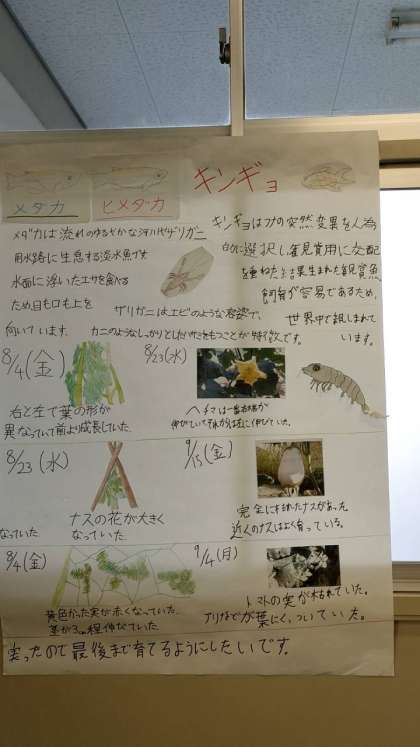 メダカ
ヒメダカ
キンギョ
メダカは流れのゆるやかな河川や
用水路に生息する淡水魚です
水面に浮いたエサを食べる
ため目も口も上を
向いています。
ザリガニ
ザリガニはエビのような容姿で、
カニのようなしっかりとしたハサミをもつことが特徴です。
キンギョはフナの突然変異を人為
的に選択し、観賞用に交配
を重ねた結果生まれた観賞魚
飼育が容易であるため、
世界中で親しまれて
います。
8/4(金)
右と左で葉の形が
異なっていて前より成長していた。
8/23(水)
ヘチマは一番右端が
伸びていて
に伸びていた。
8/23(水)
ナスの花が大きく
なっていた。
なっていた
9/15(金)
完全に枯れたナスがあった。
近くのナスはよく育っている。
8/4(金)
黄色かった実が赤くなっていた。
茎が3cm程伸びていた。
9/4(月)
トマトの実が枯れていた。
アリなどが葉にくっついていた。
ったので最後まで育てるようにしたいです。